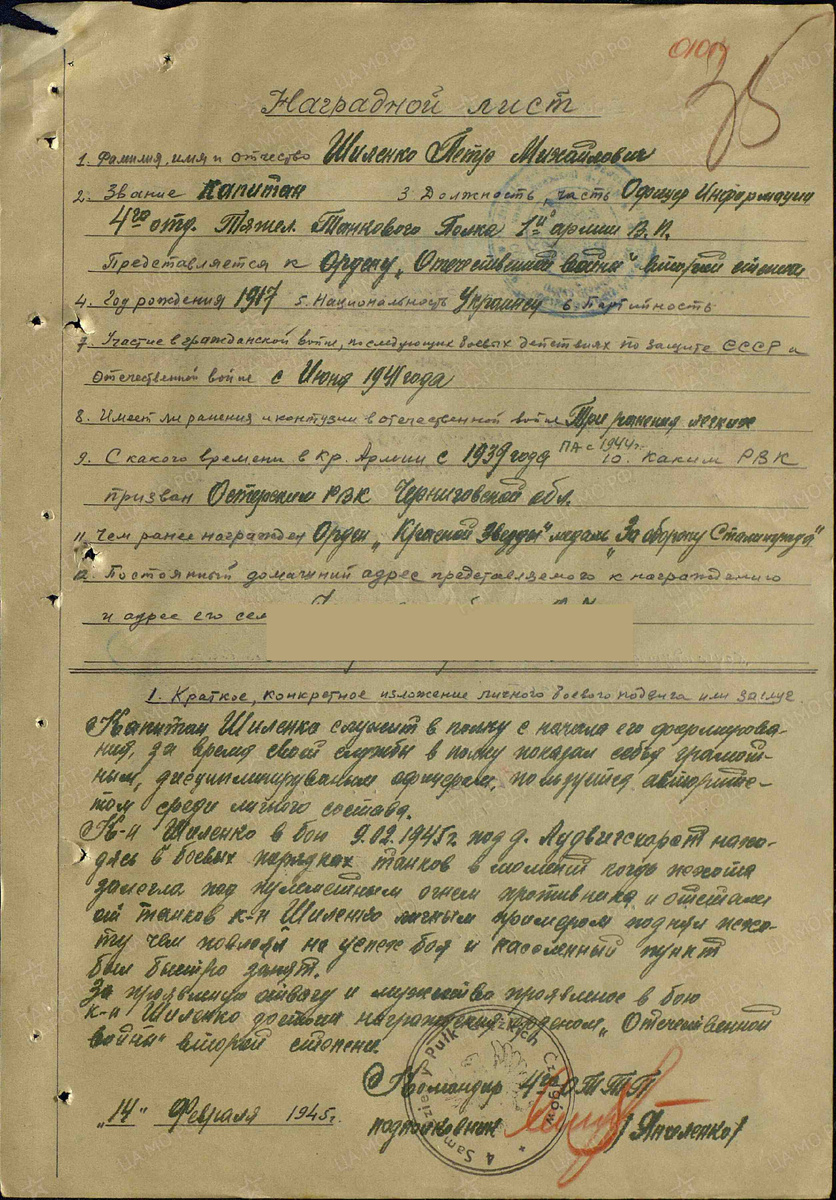 35
Наградной лист
1. Фамилия, имя и отчество Шиленко Петр Михайлович
2. Звание Капитан 3. Должность, часть Офицер Информации
4го отд. Тяжел. Танкового Полка 1й армии В.П.
Представляется к Ордену „Отечественной войны" второй степени
4. Год рождения 1917 5. Национальность Украинец 6. Партийность
7. Участие в гражданской войне, последующих боевых действиях по защите СССР и
отечественной войне с Июня 1941 года
8. Имеет ли ранения и контузии в отечественной войне Три ранения легких
9. С какого времени в Кр. Армии с 1939 года ПА с 1944 г. 10. Каким РВК
призван Остерским РВК Черниговской обл.
11. Чем ранее награжден Орден „Красной Звезды" медаль „За оборону Сталинграда"
12. Постоянный домашний адрес представляемого к награждению
и адрес его сем
1. Краткое, конкретное изложение личного боевого подвига или заслуг
Капитан Шиленко служит в полку с начала его формирова-
ния, за время своей службы в полку показал себя грамот-
ным, дисциплинированым офицером, пользуется авторите-
том среди личного состава.
К-н Шиленко в бою 9.02.1945 г. под д. Лудвигскорст нахо-
дясь в боевых порядках танков в момент когда пехота
залегла под пулеметным огнем противника и отстала
от танков к-н Шиленко личным примером поднял пехо-
ту чем повлеял на успех боя и населенный пункт
был быстро занят.
За проявленую отвагу и мужество проявленое в бою
к-н Шиленко достоин награждения орденом „Отечественной
войны" второй степени.
Командир 4го О Т Т П
„14" Февраля 1945 г. подполковник /Янчленко/
4 Samodzielny Pułk Ciężkich Czołgów
ЦАМО.РФ